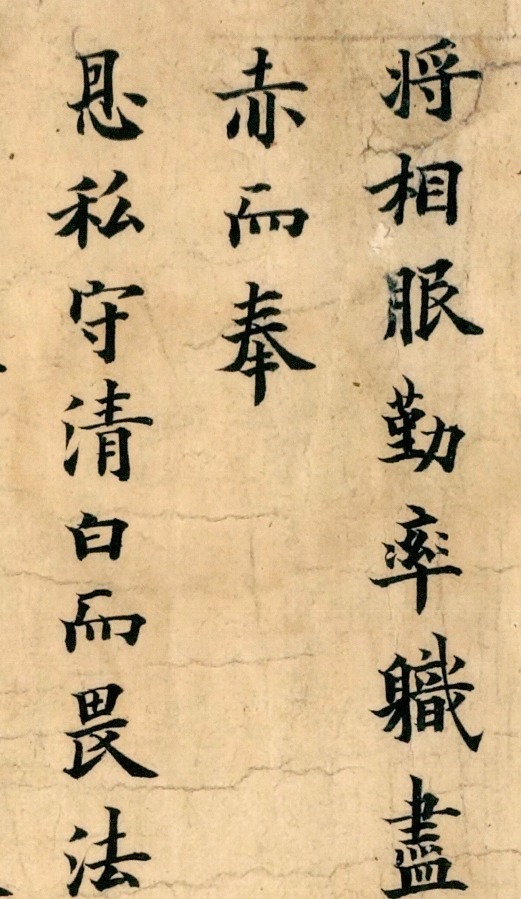 将相服勤率軄盡
赤而奉
恩私守清白而畏法